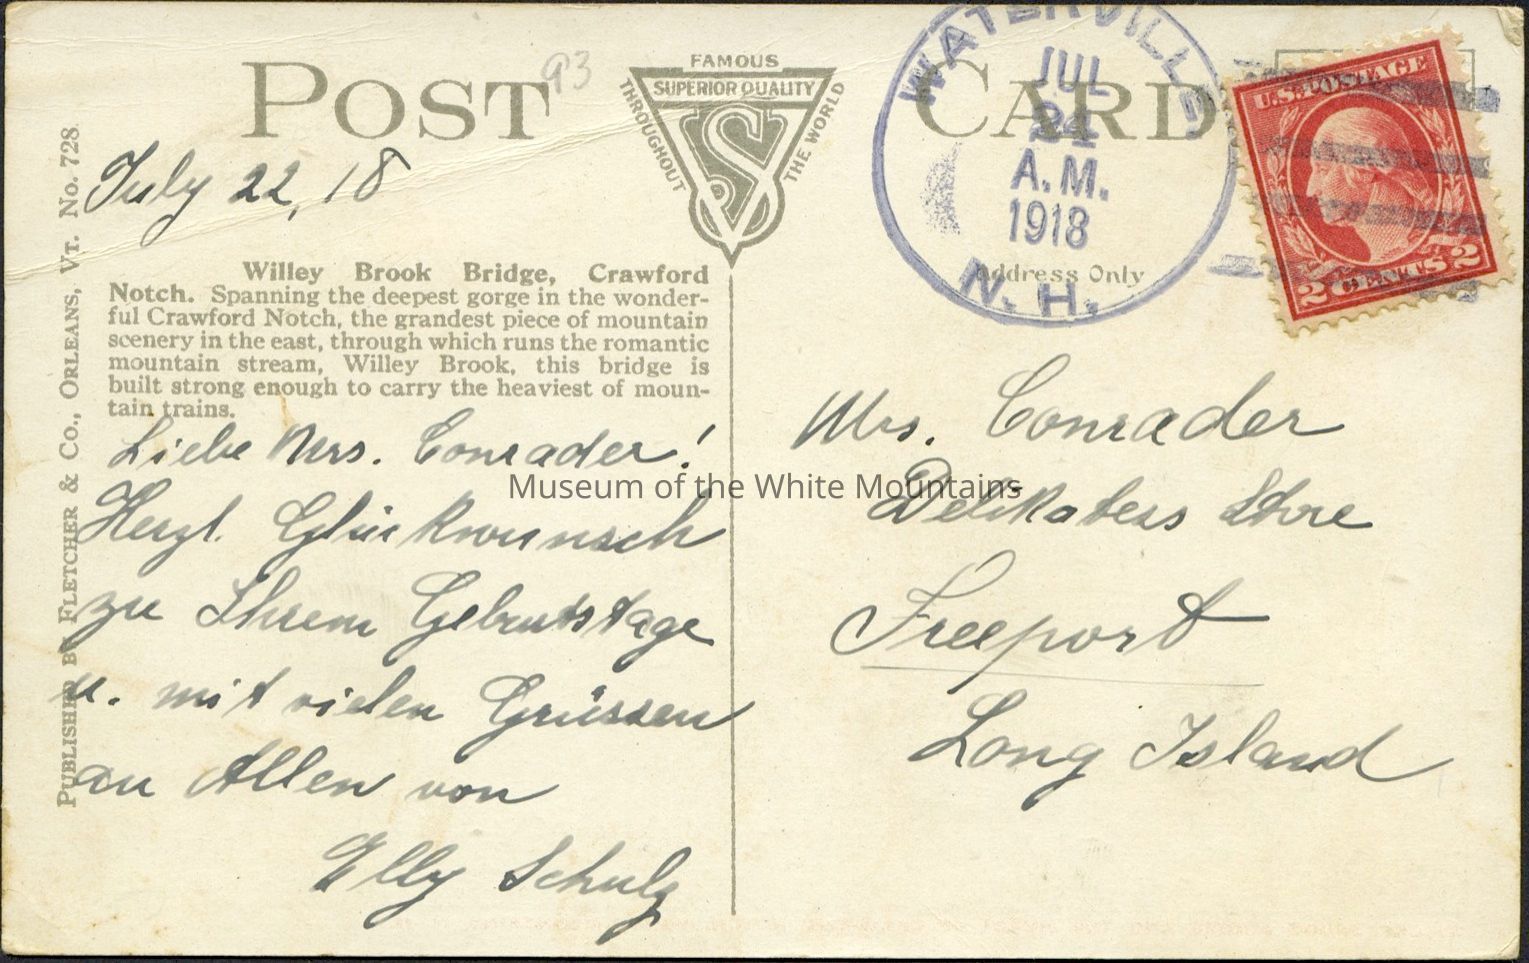 POST CARD
93
FAMOUS
SUPERIOR QUALITY
THROUGHOUT
THE WORLD
VS
WATERVILLE
JUL
24
A.M.
1918
N.H.
U.S. POSTAGE
2 CENTS 2
Address Only
PUBLISHED BY FLETCHER & CO., ORLEANS, VT. No. 728.
July 22, 18
Willey Brook Bridge, Crawford
Notch. Spanning the deepest gorge in the wonder-
ful Crawford Notch, the grandest piece of mountain
scenery in the east, through which runs the romantic
mountain stream, Willey Brook, this bridge is
built strong enough to carry the heaviest of moun-
tain trains.
Liebe Mrs. Conrader!
Herzl. Glückwunsch
zu Ihrem Geburtstage
u. mit vielen Grüssen
an Allen von
Elly Schulz
Mrs. Conrader
Delikatess Store
Freeport
Long Island
Museum of the White Mountains